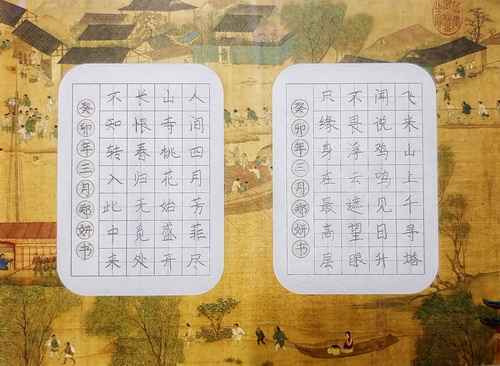 飞来山上千寻塔
闻说鸡鸣见日升
不畏浮云遮望眼
只缘身在最高层
癸卯年三月郑妍书
人间四月芳菲尽
山寺桃花始盛开
长恨春归无觅处
不知转入此中来
癸卯年三月郑妍书